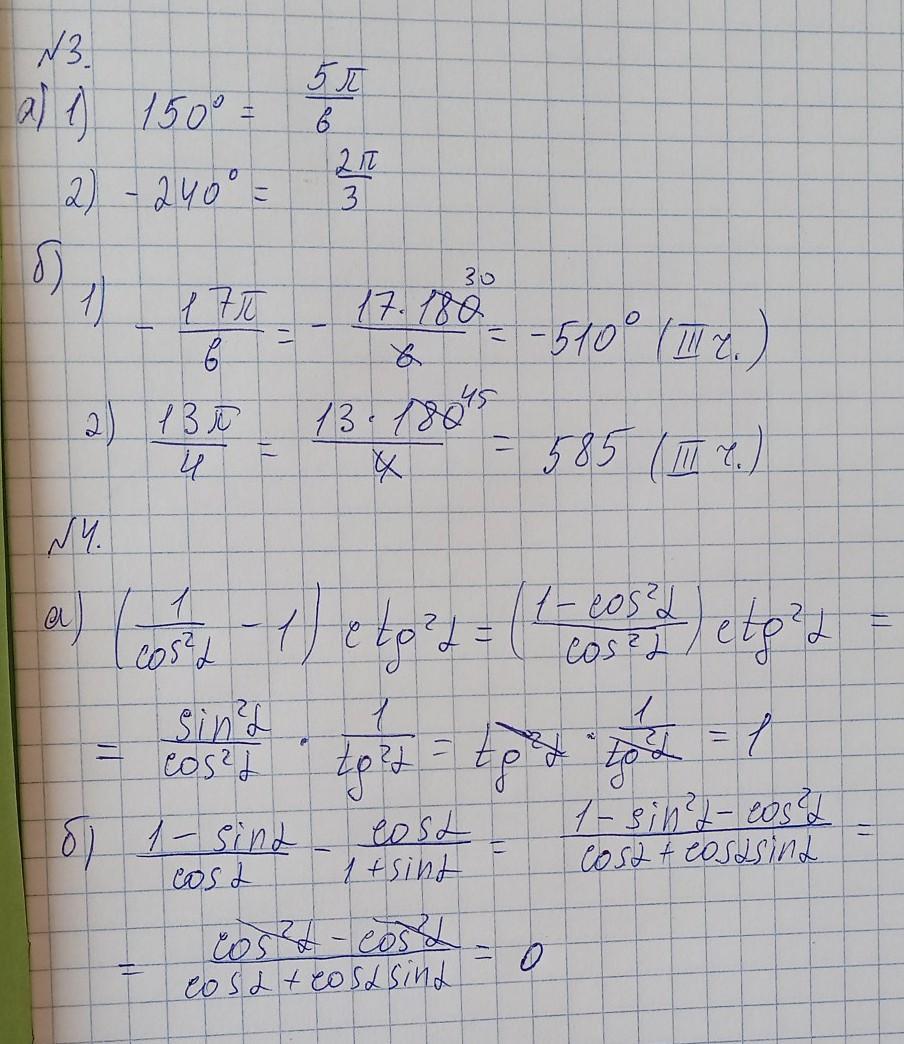 №3.
а) 1) 150° = 5π/6
2) - 240° = 2π/3
б)
1) - 17π/6 = - 17·180/6 30 = -510° (III ч.)
2) 13π/4 = 13·180/4 45 = 585 (III ч.)
№4.
а) (1/cos²α - 1) ctg²α = (1-cos²α/cos²α) ctg²α =
= sin²α/cos²α · 1/tg²α = tg²α · 1/tg²α = 1
б) 1-sinα/cosα - cosα/1+sinα = 1-sin²α-cos²α/cosα+cosαsinα =
= cos²α-cos²α/cosα+cosαsinα = 0